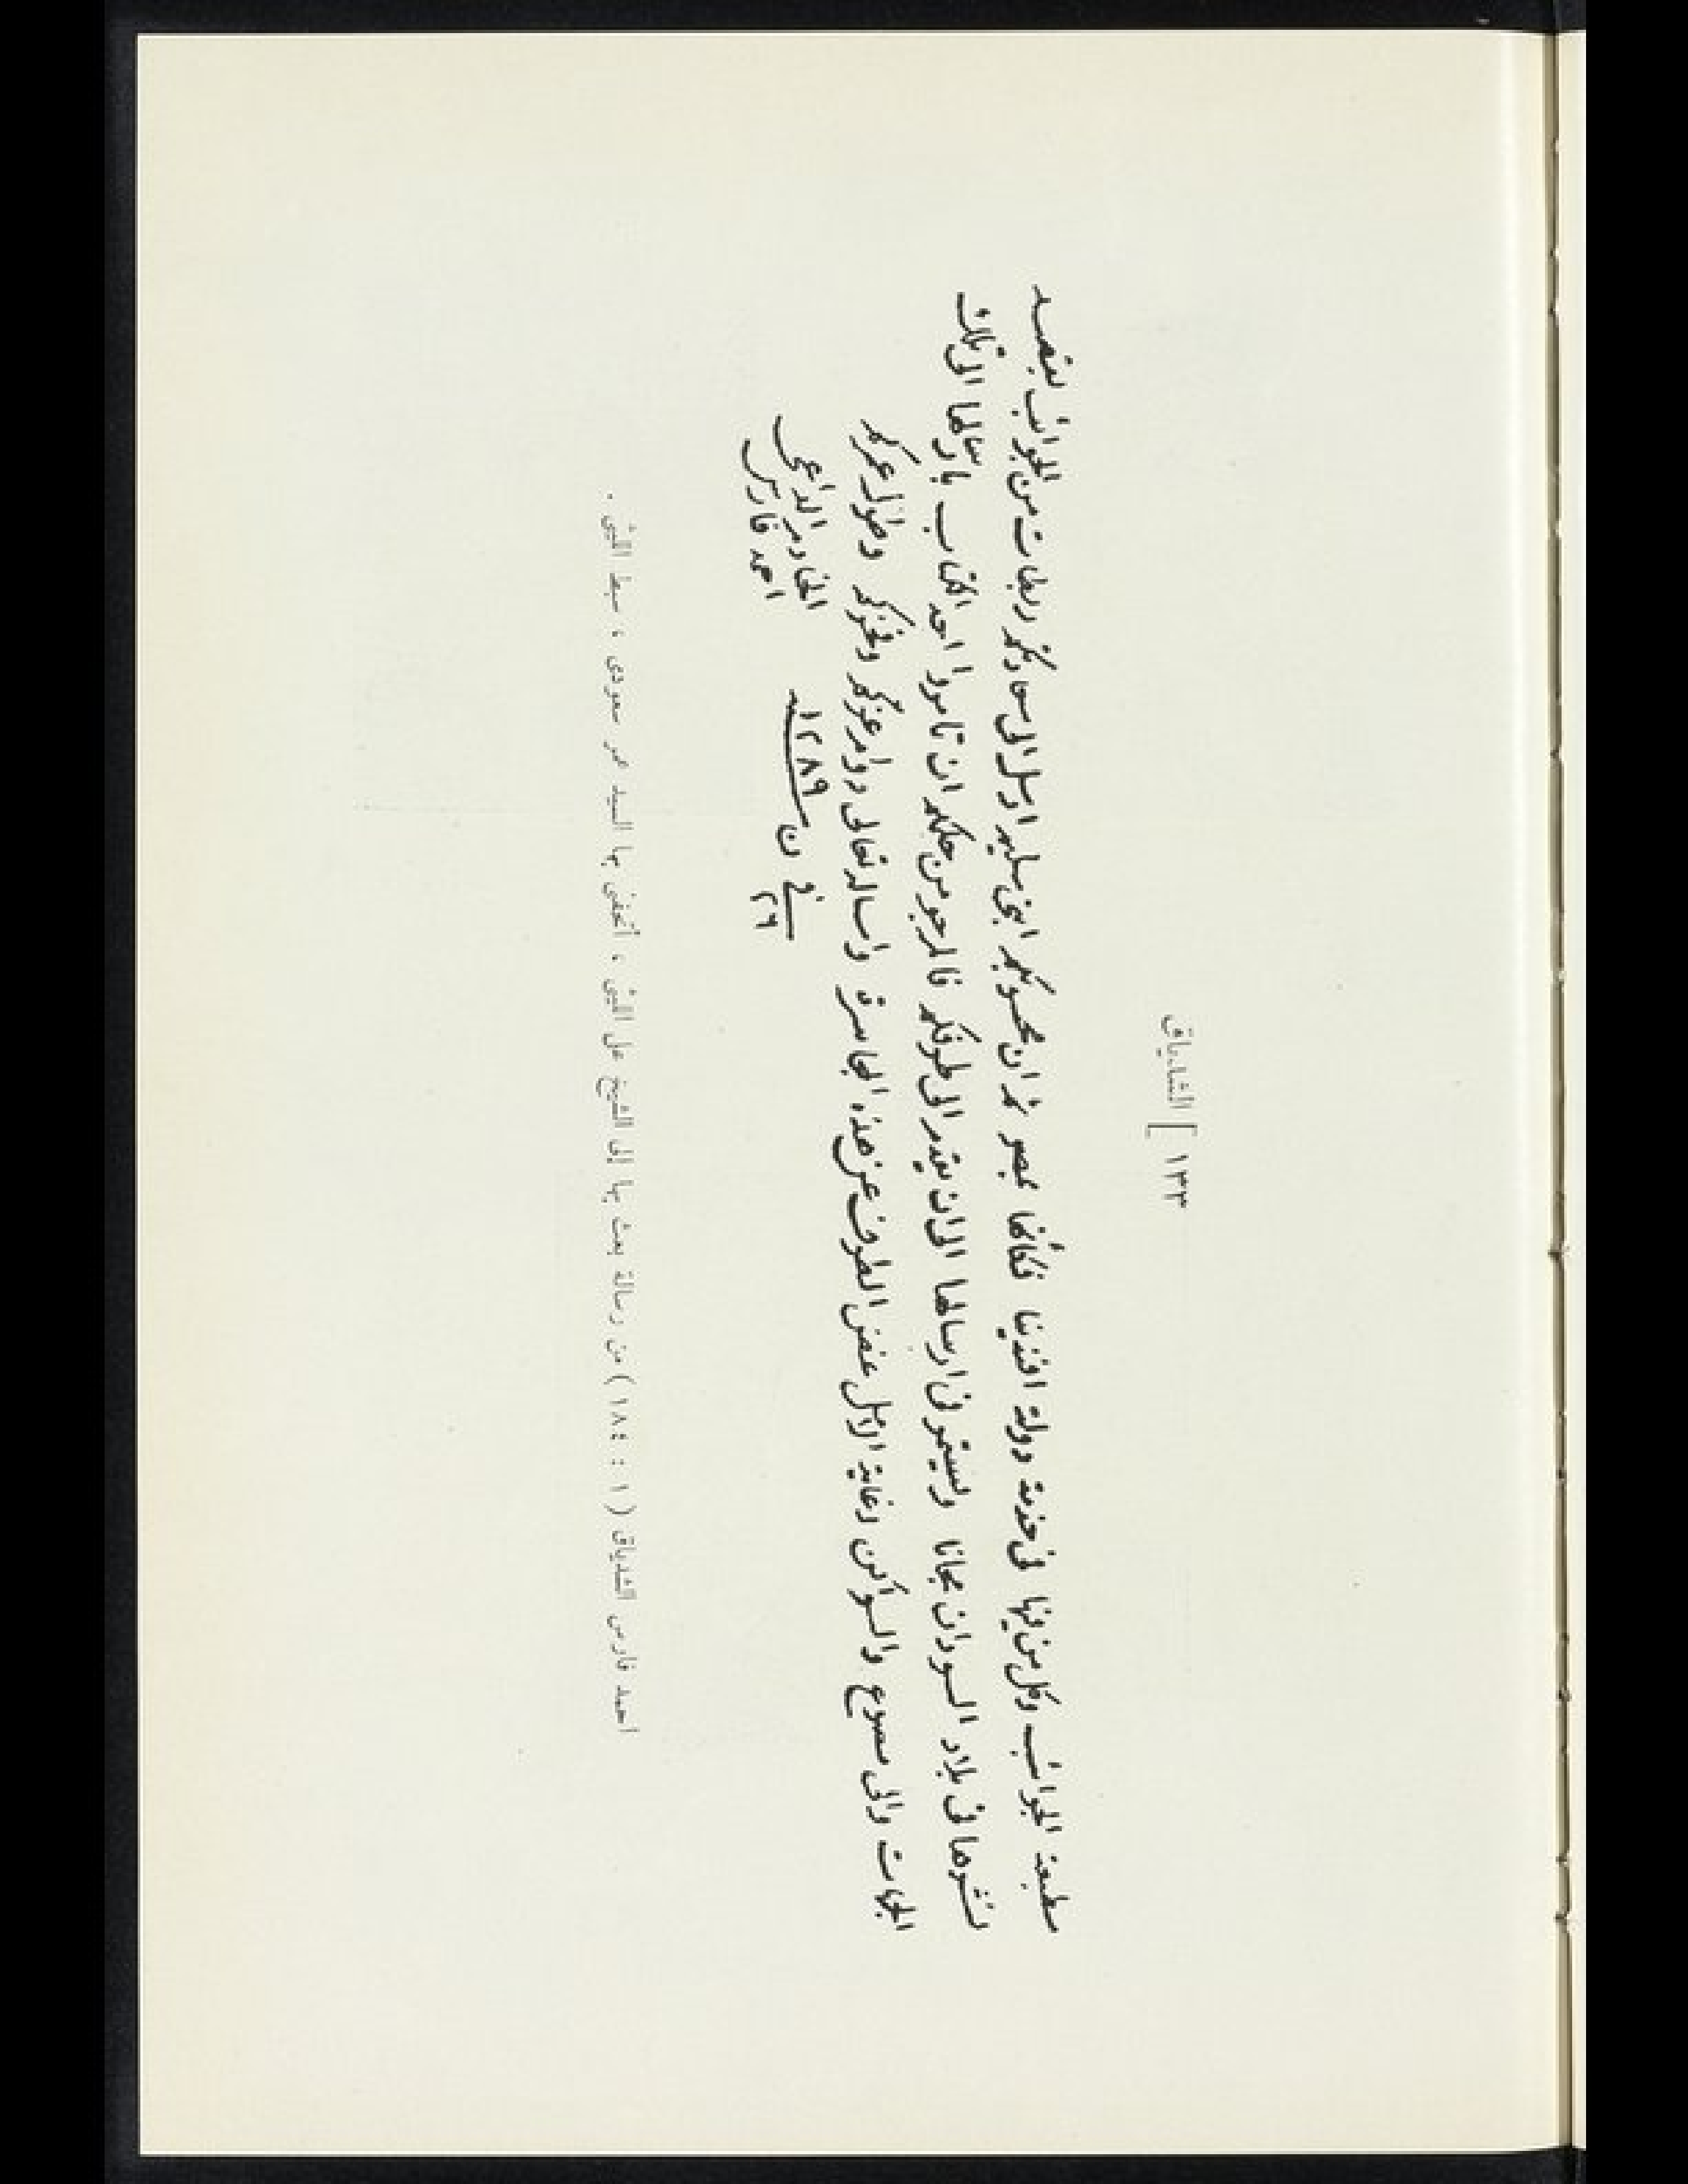 ١٣٣ ] الشدياق
مطبعة الجوائب وكل من فيها فى خدمة دولة افندينا فكأنها بمصر ثم ان محسوبكم ابنى سليم ارسل الى سعادتكم ربطات من الجوائب بقصد
نشرها فى بلاد السودان مجانا وسيستمر فى ارسالها الى ان يقدم الى طرفكم فالمرجو من حلمكم ان تامروا احد الكتاب بارسالها الى تلك
الجهات والى مصوع والسواكن وغاية الامل غض الطرف عن هذه الجاسرة واسال الله تعالى دوام عزكم وفخركم وطول عمركم
الخادم الداعى
احمد فارس
فى ٢٦ ن سنة ١٢٨٩
احمد فارس الشدياق ( ١ : ١٨٤ ) من رسالة بعث بها إلى الشيخ على الليثى ، أتحفنى بها السيد عمر سعودى ، سبط الليثى .